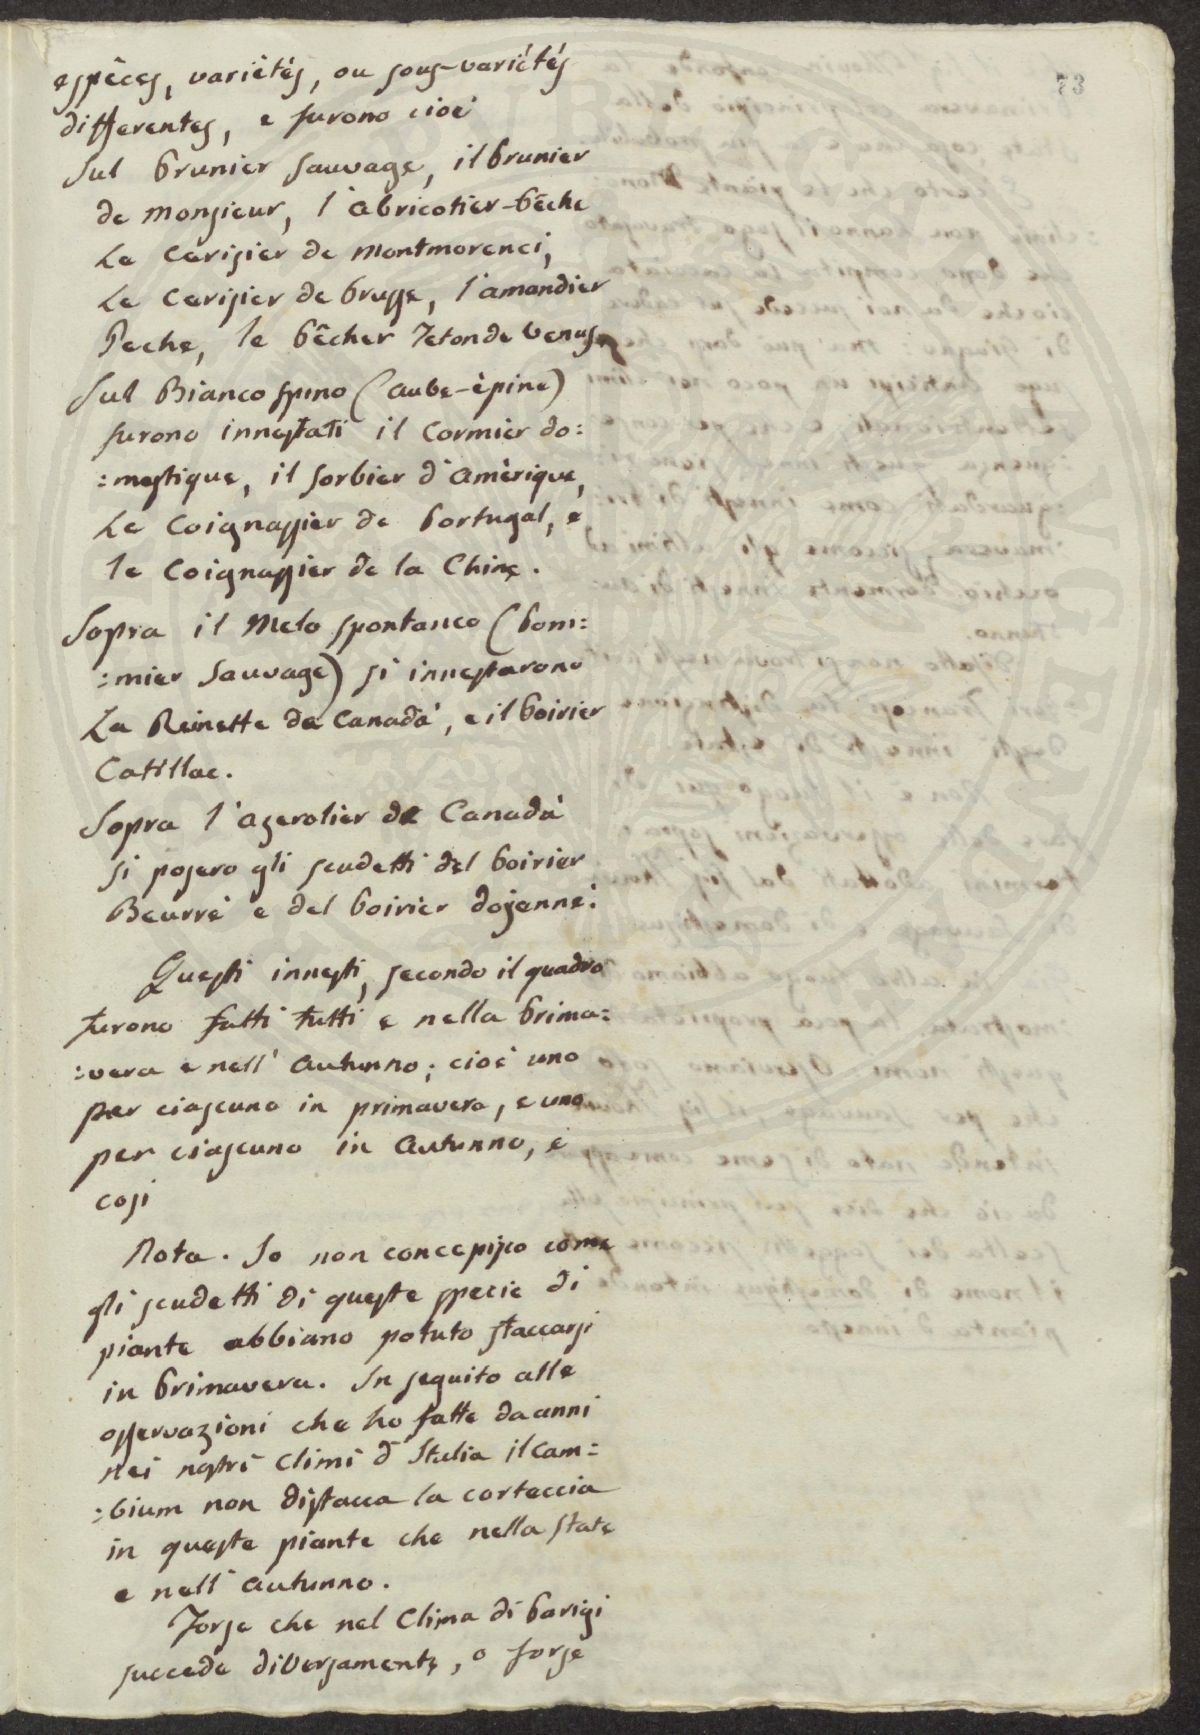 73
espêces, variêtés, ou sous-variétés
differentes, e furono cioè
Sul Prunier Sauvage, il Prunier
de Monsieur, l'Abricotier-Pêche
Le Cerisier de Montmorenci,
Le Cerisier de Prusse, l'amandier
Peche, le Pêcher Teton de Venus
Sul Bianco spino (Aube-èpine)
furono innestati il Cormier do:
:mestique, il sorbier d'Amèrique,
Le Coignassier de Portugal, e
le Coignassier de la Chine.
Sopra il Melo spontaneo (Pom:
:mier Sauvage) si innestarono
La Reinette de Canadà, e il Poirier
Catillac.
Sopra l'Azerolier de Canadà
si posero gli scudetti del Poirier
Beurré e del Poirier dojenné.
Questi innesti, secondo il quadro
furono fatti tutti e nella Prima:
:vera e nell'Autunno; cioè uno
per ciascuno in primavera, e uno
per ciascuno in Autunno, e
cosi
Nota. Io non concepisco come
gli scudetti di queste specie di
piante abbiano potuto staccarsi
in Primavera. In seguito alle
osservazioni che ho fatte da anni
nei nostri Climi d'Italia il Cam:
:bium non distacca la corteccia
in queste piante che nella state
e nell'Autunno.
Forse che nel Clima di Parigi
succede diversamente, o forse